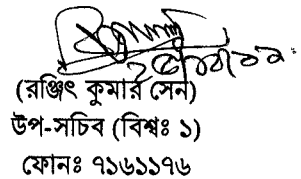 (রঞ্জিৎ কুমার সেন)
উপ-সচিব (বিশ্বঃ ১)
ফোনঃ ৭১৬১১৭৬